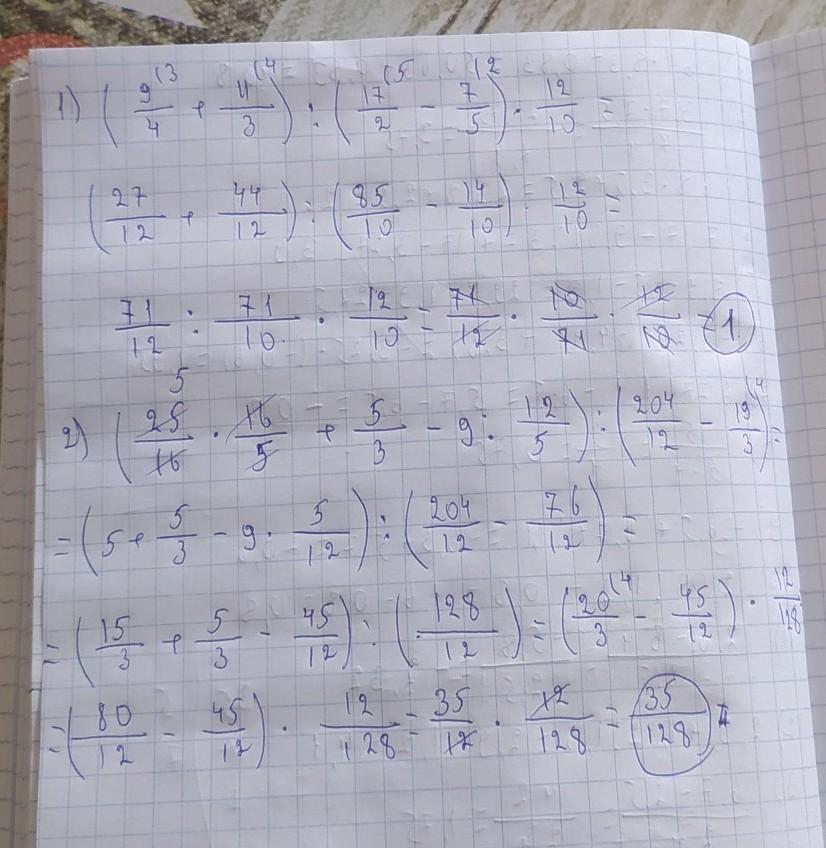 1) (9/4 (3 + 11/3 (4) : (17/2 (5 - 7/5 (2) · 12/10 =
(27/12 + 44/12) : (85/10 - 14/10) · 12/10 =
71/12 : 71/10 · 12/10 = 71/12 · 10/71 · 12/10 = 1
2) (25/16 5 · 16/5 + 5/3 - 9 : 12/5) : (204/12 - 19/3 (4) =
= (5 + 5/3 - 9 · 5/12) : (204/12 - 76/12) =
= (15/3 + 5/3 - 45/12) : (128/12) = (20/3 (4 - 45/12) · 12/128
= (80/12 - 45/12) · 12/128 = 35/12 · 12/128 = 35/128